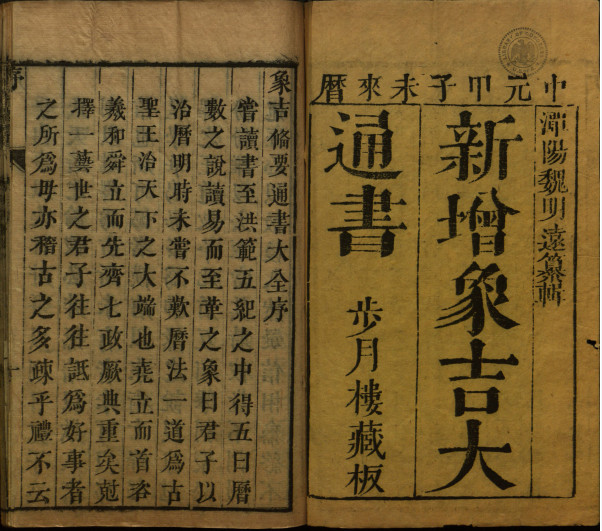 中元甲子未來曆
潭陽魏明遠纂輯
新增象吉大
通書
步月樓藏板
象吉俻要通書大全序
嘗讀書至洪範五紀之中得五曰曆
數之說讀易而至革之象曰君子以
治曆明時未嘗不歎曆法一道爲古
聖王治天下之大端也堯立而首咨
羲和舜立而先齊七政厥典重矣尅
擇一藝世之君子往往詆爲好事者
之所爲毋亦稽古之多疎乎禮不云
序